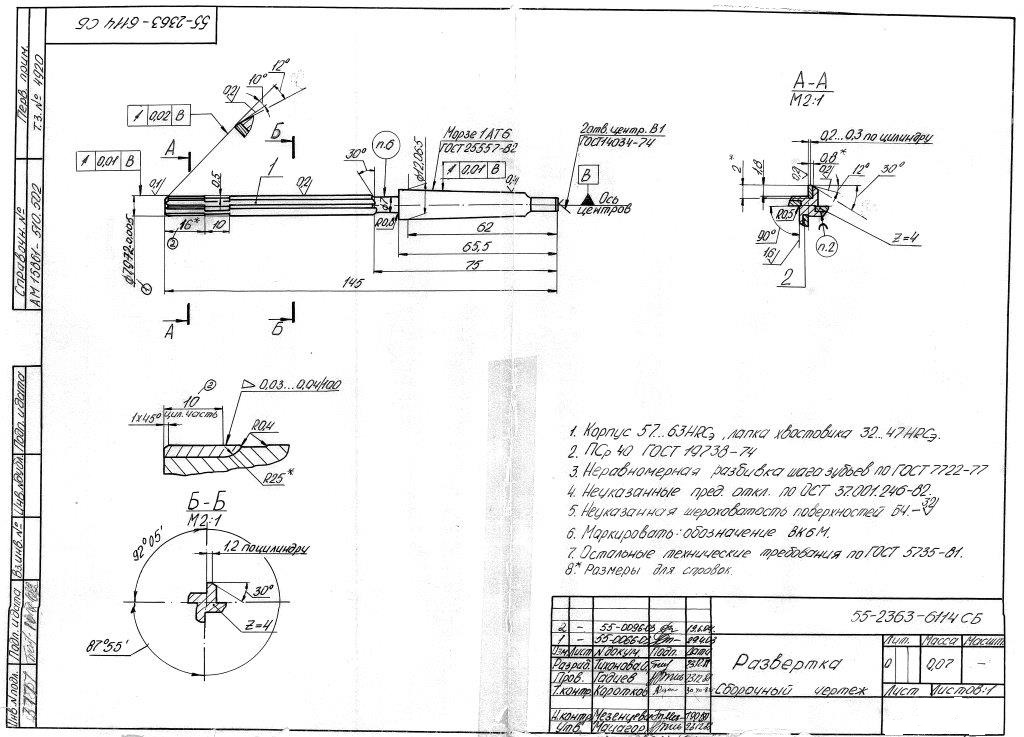 55-2363-6114 СБ
Перв. прим.
т.з. № 4920
Справочн. №
АМ 15881-510.502
Подп. и дата
Инв. № дубл.
Взаим. инв. №
Подп. и дата
Инв. № подл.
12°
10°
0,2
0,02 В
0,01 В
А
Б
0,1
1
0,5
0,2
30°
п.6
ϕ12,065
Морзе 1 АТ6
ГОСТ 25557-82
0,01 В
2 отв. центр. В1
ГОСТ 14034-74
В
Ось
центров
R0,8
16*
10
2
62
65,5
75
145
1
А
Б
А-А
М2:1
0,2...0,3 по цилиндру
2*
1,8
0,8*
0,2
12°
30°
R0,5
90°
1,6
п.2
Z=4
2
2
10
0,03...0,04/100
1х45°
цил. часть
R0,4
R25*
Б-Б
М2:1
92°05'
1,2 по цилиндру
30°
Z=4
87°55'
1. Корпус 57...63 HRCэ, лапка хвостовика 32..47 HRCэ.
2. ПСр 40 ГОСТ 19738-74
3. Неравномерная разбивка шага зубьев по ГОСТ 7722-77
4. Неуказанные пред. откл. по ОСТ 37.001.246-82.
5. Неуказанная шероховатость поверхностей БЧ.-3,2
6. Маркировать: обозначение ВК6М.
7. Остальные технические требования по ГОСТ 5735-81.
8.* Размеры для справок.
55-2363-6114 СБ
2 -
1 -
Изм Лист № докум. Подп. Дата
Разраб. Тихонова
Пров. Гадиев
Т.контр. Коротков
Н.контр. Мезенцева
Утв.
Развертка
Сборочный чертеж
Лит. Масса Масшт.
0,07 -
Лист Листов:1